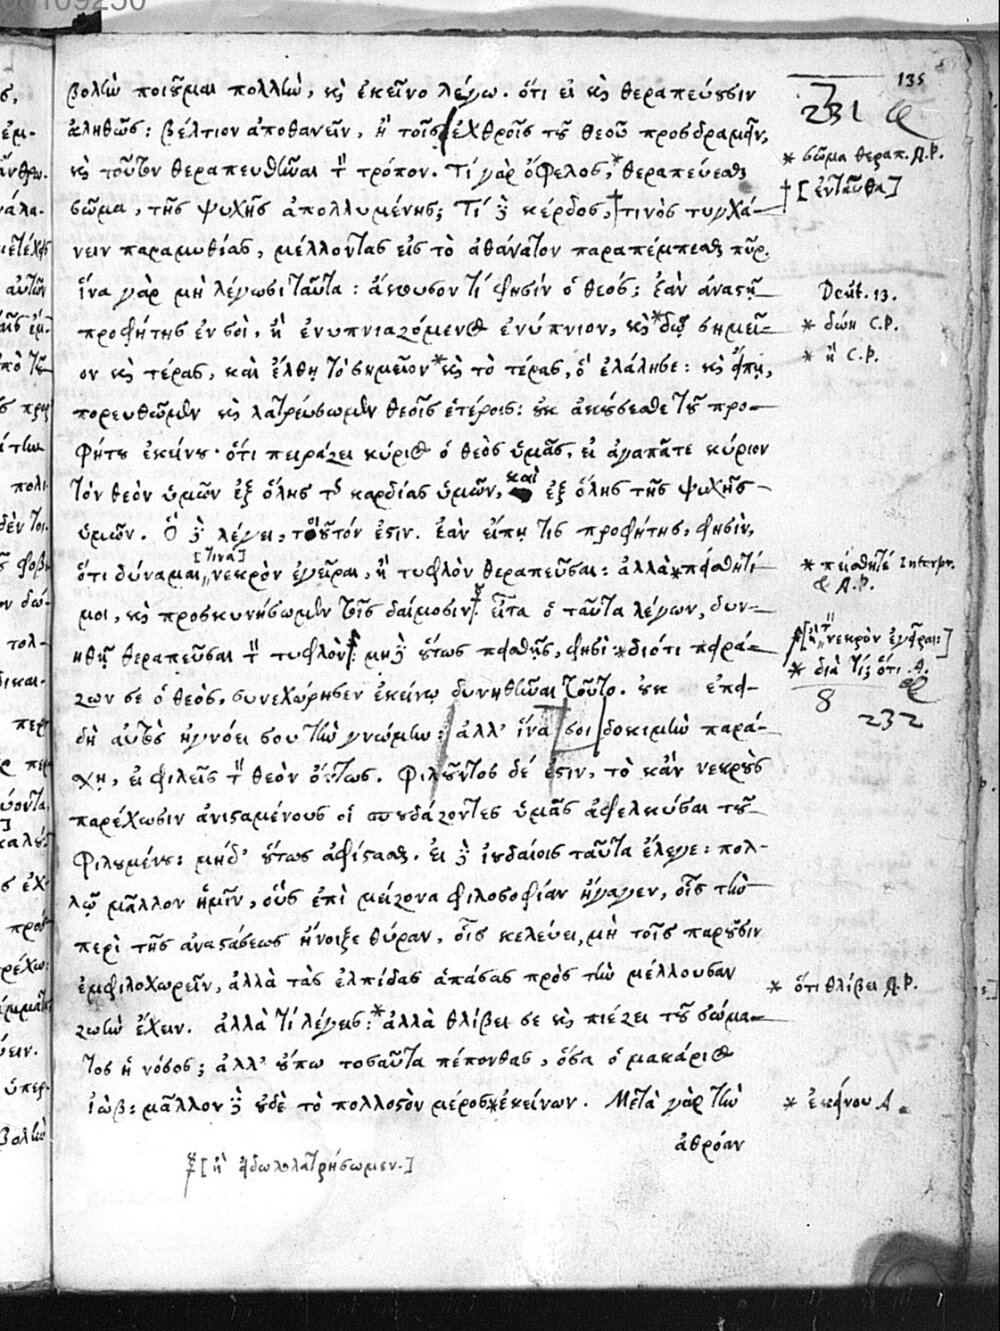 135
231
βολὴν ποιοῦμαι πολλὴν, κὶ ἐκεῖνο λέγω. ὅτι εἰ κὶ θεραπεύουσιν
ἀληθῶς: βέλτιον ἀποθανεῖν, ἢ τοῖς ἐχθροῖς τοῦ θεοῦ προσδραμεῖν,
* σῶμα θεραπ. Α.Ρ.
κὶ τοῦτον θεραπευθῆναι τὸν τρόπον. Τί γὰρ ὄφελος,* θεραπεύεσθαι
† [ἐνταῦθα]
σῶμα, τῆς ψυχῆς ἀπολλυμένης; Τί δὲ κέρδος,† τινὸς τυγχά-
νειν παραμυθίας, μέλλοντας εἰς τὸ ἀθάνατον παραπέμπεσθαι πῦρ.
ἵνα γὰρ μὴ λέγωσι ταῦτα: ἄκουσον τί φησὶν ὁ θεός; ἐὰν ἀναστῇ
Deut. 13.
προφήτης ἐν σοὶ, ἢ ἐνυπνιαζόμενος ἐνύπνιον, κὶ* δῷ σημεῖ-
* δώη C.Ρ.
ον κὶ τέρας, καὶ ἔλθῃ τὸ σημεῖον* κὶ τὸ τέρας, ὃ ἐλάλησε: κὶ εἴπῃ,
* ἢ C.Ρ.
πορευθῶμεν κὶ λατρεύσωμεν θεοῖς ἑτέροις: οὐκ ἀκούσεσθε τοῦ προ-
φήτου ἐκείνου· ὅτι πειράζει κύριος ὁ θεὸς ὑμᾶς, εἰ ἀγαπᾶτε κύριον
τὸν θεὸν ὑμῶν ἐξ ὅλης τῆς καρδίας ὑμῶν, καὶ ἐξ ὅλης τῆς ψυχῆς
ὑμῶν. Ὃ δὲ λέγει, τοιοῦτόν ἐστιν. ἐὰν εἴπῃ τις προφήτης, φησὶν,
[τινὰ]
ὅτι δύναμαι νεκρὸν ἐγεῖραι, ἢ τυφλὸν θεραπεῦσαι: ἀλλὰ* πείσθητέ
* πείσθητέ Interpr.
& Α.Ρ.
μοι, κὶ προσκυνήσωμεν τοῖς δαίμοσιν: εἶτα ὁ ταῦτα λέγων, δυν-
[ἢ τὸν νεκρὸν ἐγεῖραι:]
ηθῇ θεραπεῦσαι τὸν τυφλὸν: μηδὲ οὕτως πεισθῇς, φησὶ* διότι πειρά-
* διὰ τί; ὅτι. Α.
ζων σε ὁ θεὸς, συνεχώρησεν ἐκείνῳ δυνηθῆναι τοῦτο. οὐκ ἐπει-
8
232
δὴ αὐτὸς ἠγνόει σου τὴν γνώμην: ἀλλ' ἵνα σοι δοκιμὴν παρά-
χῃ, εἰ φιλεῖς τὸν θεὸν ὄντως. Φιλοῦντος δέ ἐστιν, τὸ κἂν νεκροὺς
παρέχωσιν ἀνισταμένους οἱ σπουδάζοντες ὑμᾶς ἀφελκύσαι τοῦ
φιλουμένου: μηδ' οὕτως ἀφίστασθαι. εἰ δὲ ἰουδαίοις ταῦτα ἔλεγε: πολ-
λῷ μᾶλλον ἡμῖν, οὓς ἐπὶ μείζονα φιλοσοφίαν ἤγαγεν, οἷς τὴν
περὶ τῆς ἀναστάσεως ἤνοιξε θύραν, οἷς κελεύει, μὴ τοῖς παροῦσιν
ἐμφιλοχωρεῖν, ἀλλὰ τὰς ἐλπίδας ἁπάσας πρὸς τὴν μέλλουσαν
* ὅτι θλίβει Α.Ρ.
ζωὴν ἔχειν. ἀλλὰ τί λέγεις:* ἀλλὰ θλίβει σε κὶ πιέζει τοῦ σώμα-
τος ἡ νόσος; ἀλλ' οὔπω τοσαῦτα πέπονθας, ὅσα ὁ μακάριος
ἰώβ: μᾶλλον δὲ οὐδὲ τὸ πολλοστὸν μέρος* ἐκείνων. Μετὰ γὰρ τὴν
* ἐκείνου Α.
ἀθρόαν
[ἢ εἰδωλολατρήσωμεν.]